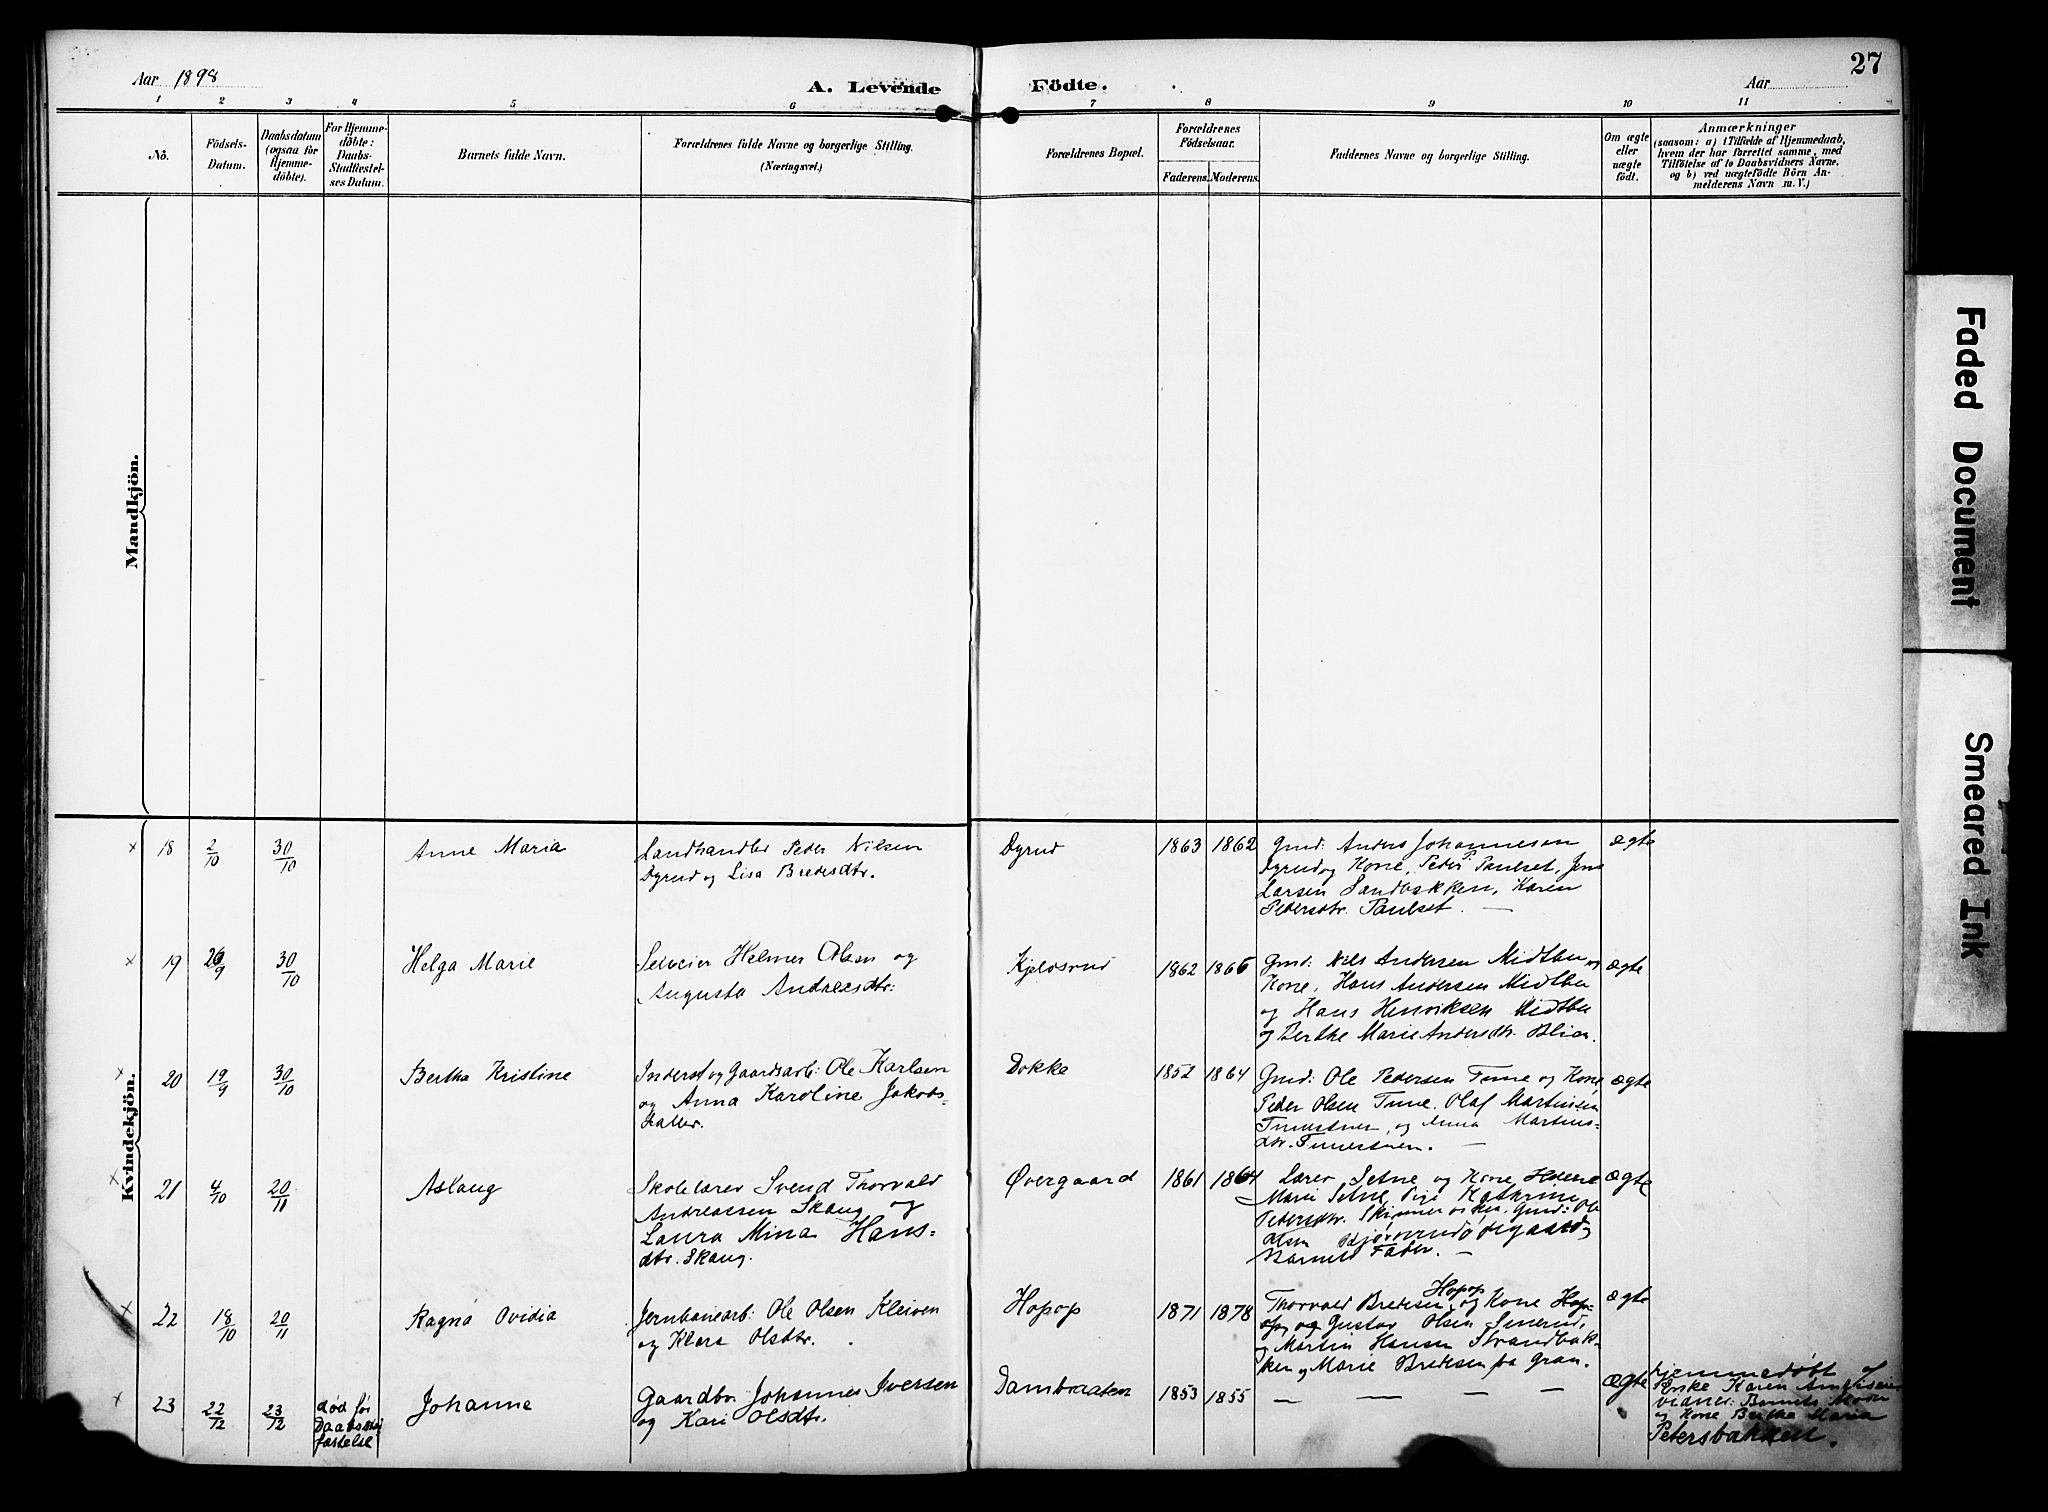 Aar 1898
A. Levende Födte.
Aar
27
1 2 3 4 5 6 7 8 9 10 11
Nô.
Födsels-
Datum.
Daabsdatum
(ogsaa for
Hjemme-
döbte).
For Hjemme-
döbte:
Daabs-
Stadfæstel-
ses Datum.
Barnets fulde Navn.
Forældrenes fulde Navne og borgerlige Stilling.
(Næringsvei.)
Forældrenes Bopæl.
Forældrenes
Födselsaar.
Faderens. Moderens.
Faddernes Navne og borgerlige Stilling.
Om ægte
eller
uægte
födt.
Anmærkninger
(saasom: a) i Tilfælde af Hjemmedaab,
hvem der har forrettet samme, med
Tilföielse af to Daabsvidners Navne.
og b) ved uægtefödte Börn An-
melderens Navn m. V.)
Mandkjön.
Kvindekjön.
18 2/10 30/10 Anne Maria
Landhandler Peder Nilsen
Dyrud og Lisa Bredesdtr.
Dyrud 1863 1862
Gmd: Anders Johannesen
Dyrud og Kone, Peder P. Paulset, Jens
Larsen Sandbakken, Karen
Pedersdtr. Paulset. —
ægte
19 26/9 30/10 Helga Marie
Selveier Helmer Olsen og
Augusta Andreasdtr:
1862
Gmd: Nils Andersen Midtbu og
Kone, Hans Andersen Midtbu
og Hans Henriksen Midtbu
og Berthe Marie Andersdtr.
ægte
20 19/9 30/10 Bertha Kristine
Inderst og Gaardsarb: Ole Karlsen
og Anna Karoline Jakobs-
datter.
Dokke 1852 1864
Gmd: Ole Pedersen Tune og Kone,
Peder Olsen Tune, Olaf Martinsen
og Anna Martins-
dtr. —
ægte
21 4/10 20/11 Aslaug
Skolelærer Svend Thorvald
Andreassen Skaug og
Laura Mina Hans-
dtr. Skaug.
Øvergaard 1861 1864
Lærer Setne og Kone Helene
Marie Setne, Pige Kathrine
Pedersdtr. Gmd: Ole
Olsen
Barnets Fader. —
ægte
22 18/10 20/11 Ragna Ovidia
Jernbanearb: Ole Olsen Kleiven
og Klara Olsdtr.
Hopop 1871 1878
Thorvald Bredesen Hopop og Kone
og Gustav Olsen
og Martin Hansen Strandbak-
ken og Marie Bredesen fra Gran.
ægte
23 22/12 23/12 død før
Daabsstad-
fæstelse
Johanne
Gaardbr. Johannes Iversen
og Kari Olsdtr.
Dambraaten 1853 1855
— — — —
ægte
hjemmedøbt af
Enke Karen
Barnets Moder
og Kone Berthe Maria
Petersbakken.
Faded Document
Smeared Ink